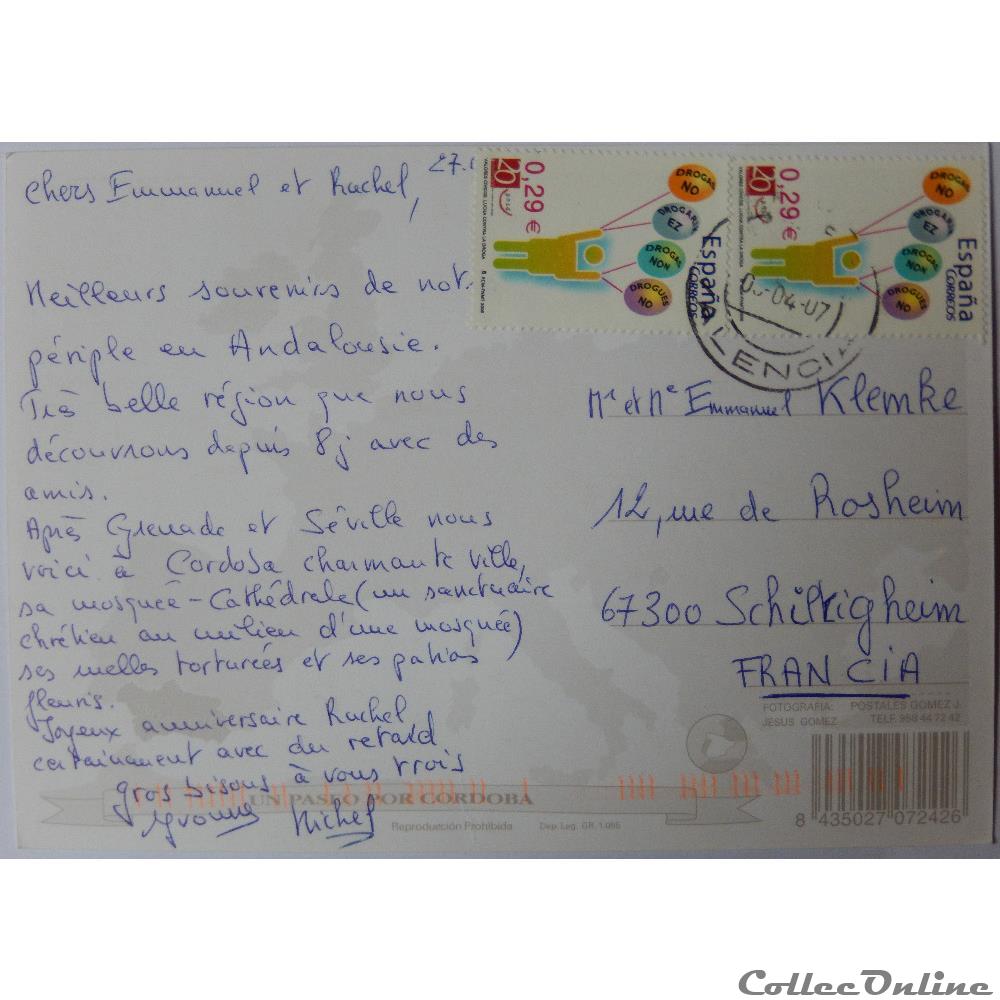 Chers Emmanuel et Rachel,
27.
Meilleurs souvenirs de not.
périple en Andalousie.
Très belle région que nous
découvrons depuis 8j avec des
amis.
Après Grenade et Séville nous
voici à Cordoba charmante ville,
sa mosquée-Cathédrale (un sanctuaire
chrétien au milieu d'une mosquée)
ses ruelles torturées et ses patios
fleuris.
Joyeux anniversaire Rachel
certainement avec du retard
gros bisous à vous trois
Michel
0,29 €
DROGAS NO
DROGARIK EZ
DROGAS NON
DROGUES NO
España
CORREOS
0,29 €
DROGAS NO
DROGARIK EZ
DROGAS NON
DROGUES NO
España
CORREOS
-04-07
VALENCIA
Mr et Me Emmanuel Klemke
12, rue de Rosheim
67300 Schiltigheim
FRANCIA
FOTOGRAFIA: POSTALES GOMEZ J.
JESUS GOMEZ TELF. 958 44 72 42
UN PASEO POR CORDOBA
Reproducción Prohibida Dep. Leg. GR. 1.065
8 435027 072426
CollecOnline